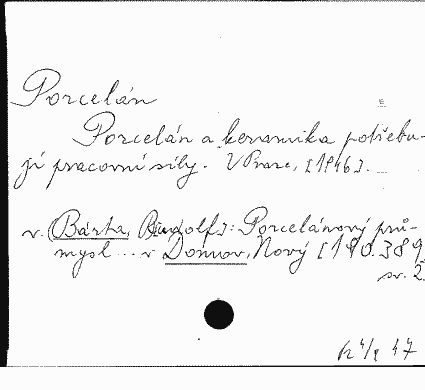 Porcelán
Porcelán a keramika potřebu-
jí pracovní síly. V Praze, [1946].
v. (Bárta, Rudolf): Porcelánový prů-
mysl ... v Domov, Nový [190.389,
sv. 2.
47